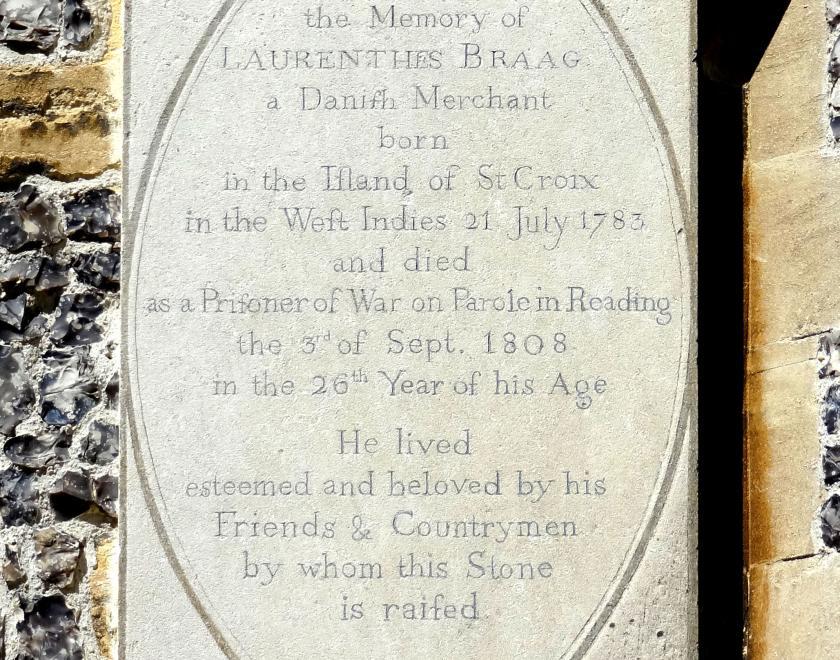 the Memory of
LAURENTHES BRAAG
a Daniſh Merchant
born
in the Iſland of St Croix
in the Weſt Indies 21 July 1783
and died
as a Priſoner of War on Parole in Reading
the 3rd of Sept. 1808
in the 26th Year of his Age
He lived
esteemed and beloved by his
Friends & Countrymen
by whom this Stone
is raiſed